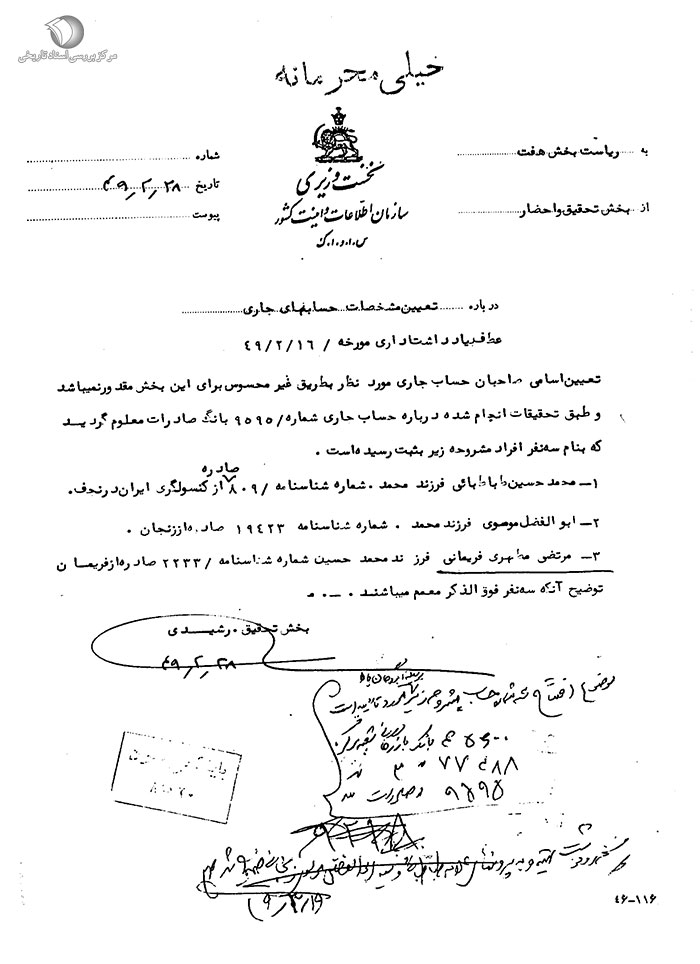 مرکز بررسی اسناد تاریخی
خیلی محرمانه
به ریاست بخش هفت
از بخش تحقیق و احضار
نخست وزیری
سازمان اطلاعات و امنیت کشور
س.ا.و.ا.ک
شماره
تاریخ ۴۹٫۲٫۲۸
پیوست
درباره تعیین مشخصات حسابهای جاری
عطف بیادداشت اداری مورخه / ۴۹/۲/۱۶
تعیین اسامی صاحبان حساب جاری مورد نظر بطریق غیر محسوس برای این بخش مقدور نمیباشد
و طبق تحقیقات انجام شده درباره حساب جاری شماره/ ۹۵۹۵ بانک صادرات معلوم گردید
که بنام سه نفر افراد مشروحه زیر بثبت رسیده است .
۱— محمد حسین طباطبائی فرزند محمد . شماره شناسنامه /۸۰۹ صادره از کنسولگری ایران در نجف.
۲— ابوالفضل موسوی فرزند محمد . شماره شناسنامه ۱۹۴۲۳ صادره از زنجان .
۳— مرتضی مطهری فریمانی فرزند محمد حسین شماره شناسنامه / ۲۲۳۳ صادره از فریمان
توضیح آنکه سه نفر فوق الذکر معمم میباشند . — . م
بخش تحقیق . رشیدی
۴۹٫۲٫۲۸
موضوع افتتاح
بانک بازرگانی شعبه مرکز
۳۰۷۷۴۸۸
۹۵۹۵ صادرات
۴۶-۱۱۶